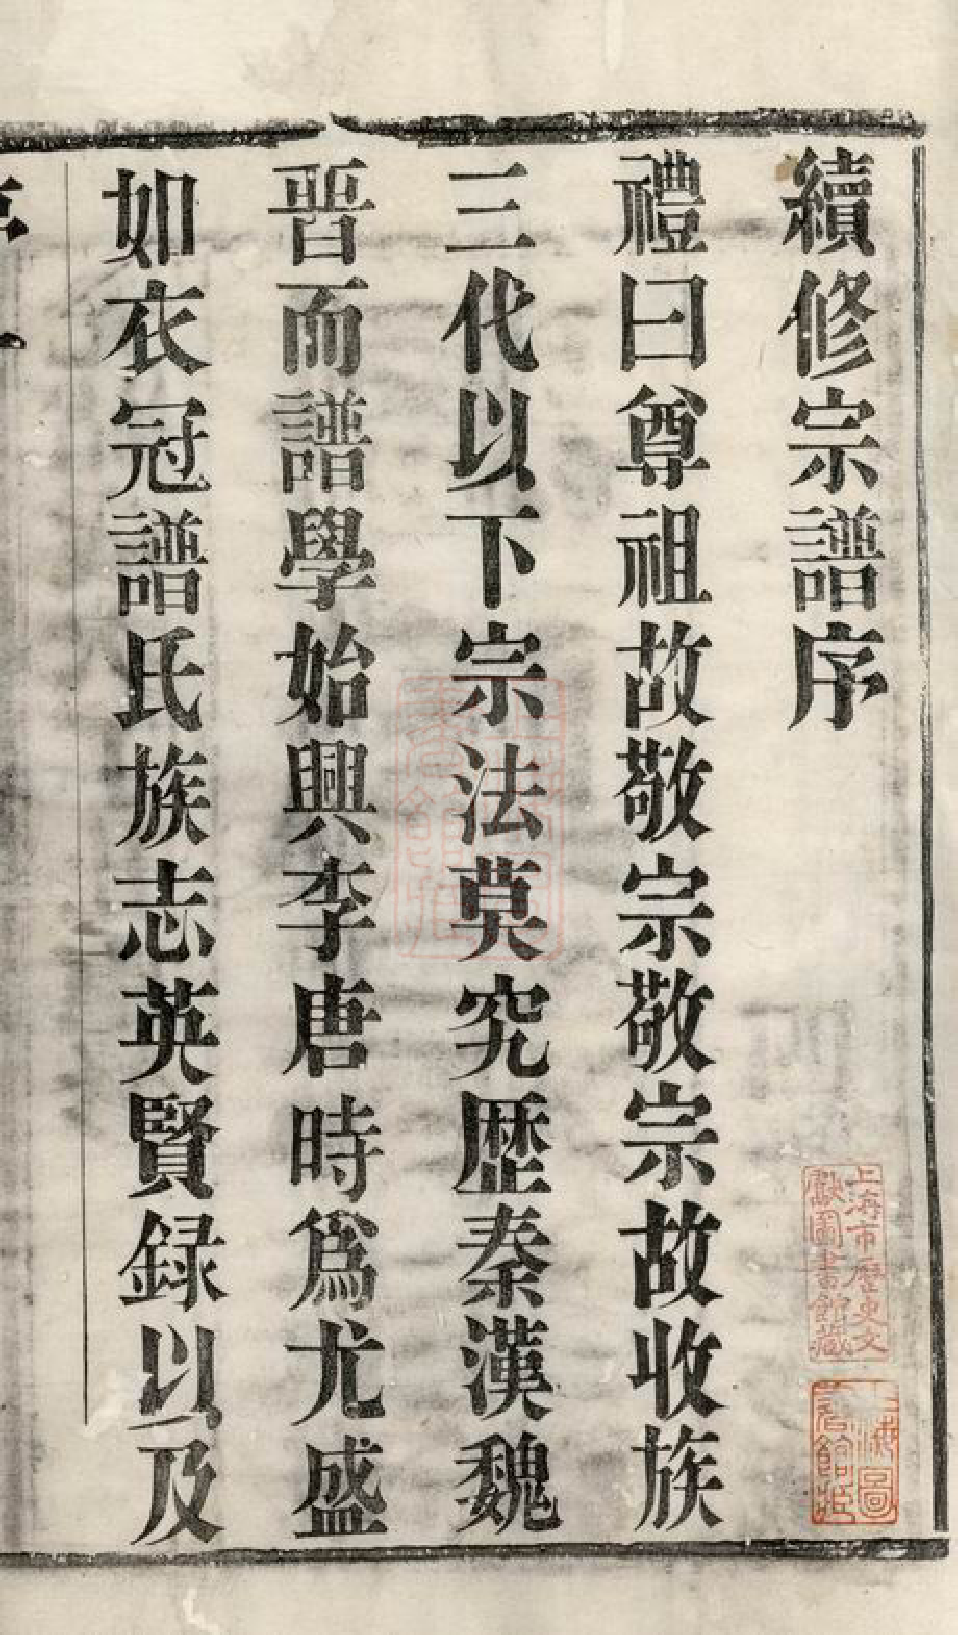 續修宗譜序
禮曰尊祖故敬宗敬宗故收族
三代以下宗法莫究歴秦漢魏
晋而譜學始興李唐時爲尤盛
如衣冠譜氏族志英賢録以及
上海市歷史文
獻圖書館藏
上海圖
書館藏